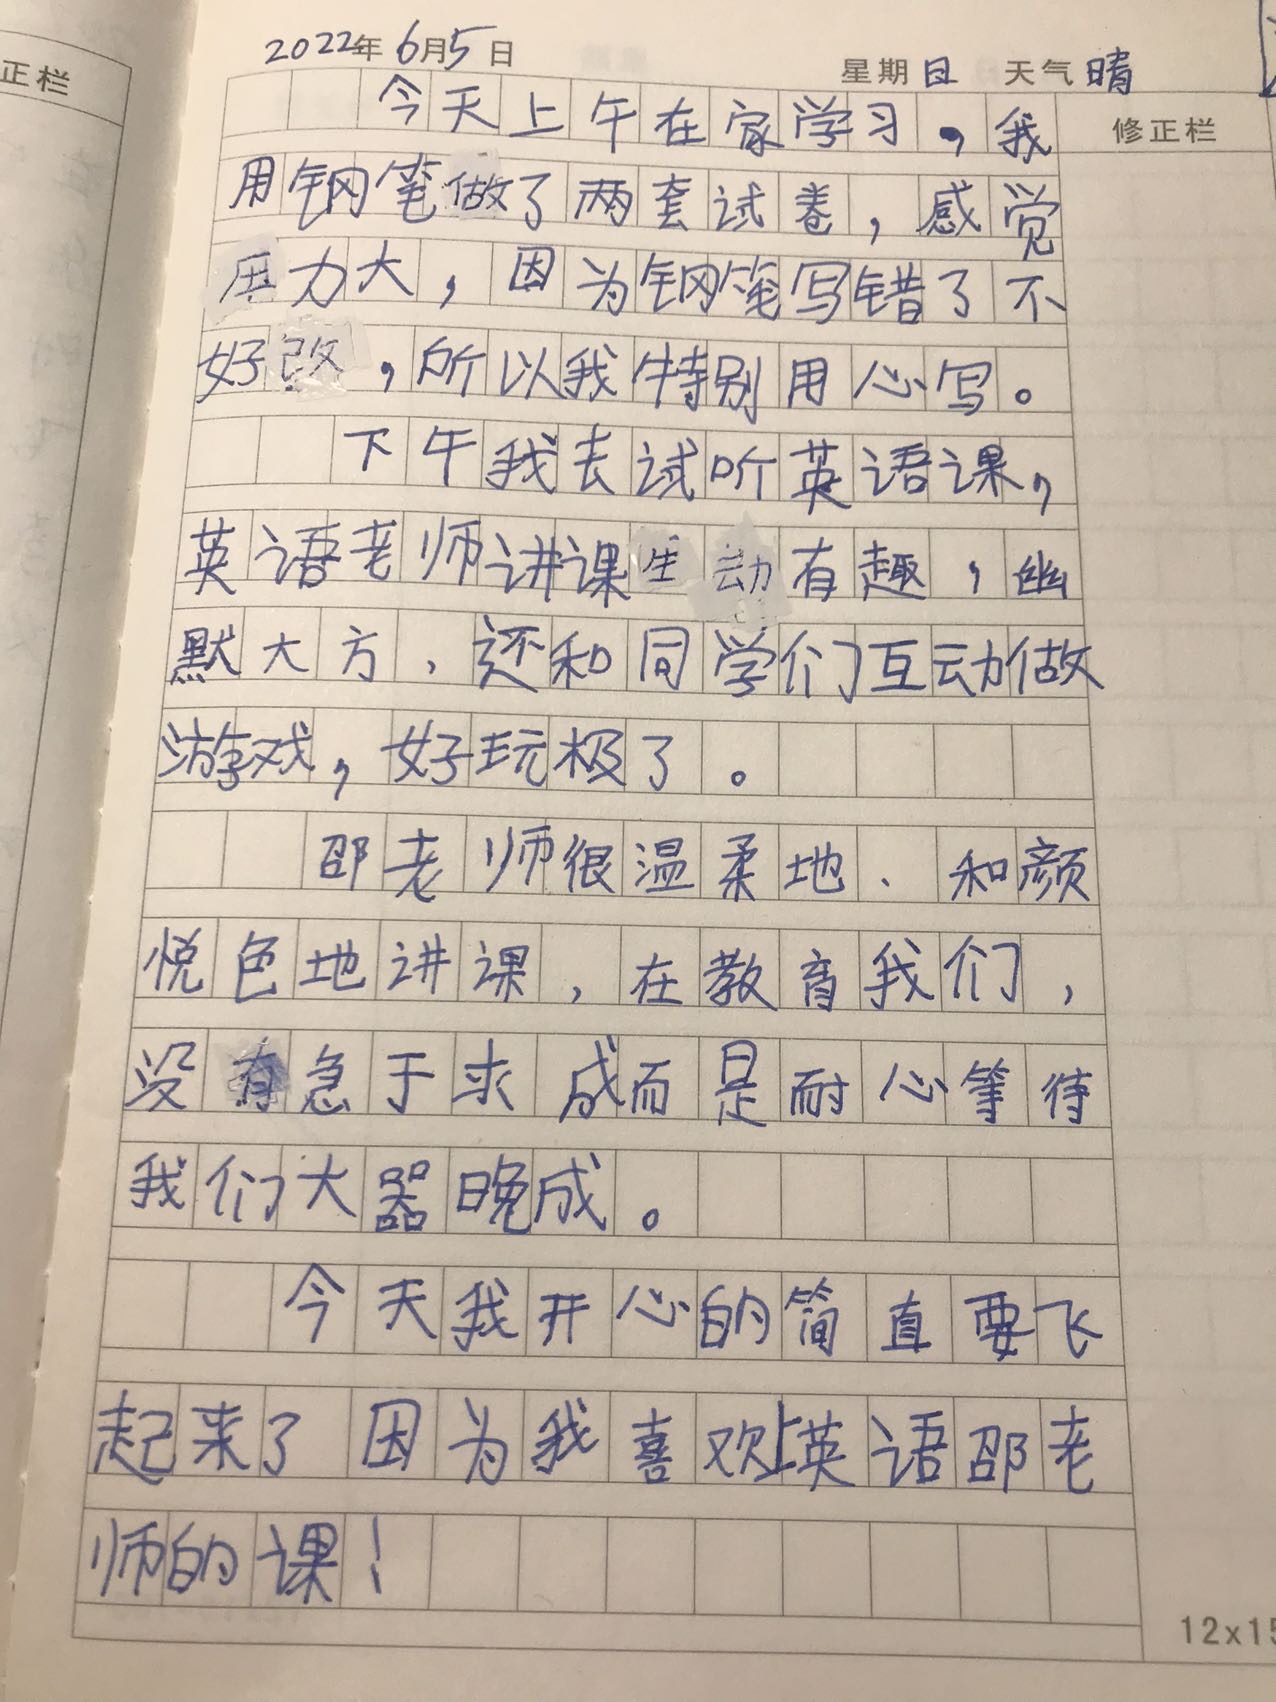 正栏
2022年6月5日
星期日 天气晴
修正栏
今天上午在家学习，我
用钢笔做了两套试卷，感觉
压力大，因为钢笔写错了不
好改，所以我特别用心写。
下午我去试听英语课，
英语老师讲课生动有趣，幽
默大方，还和同学们互动做
游戏，好玩极了。
邵老师很温柔地、和颜
悦色地讲课，在教育我们，
没有急于求成而是耐心等待
我们大器晚成。
今天我开心的简直要飞
起来了因为我喜欢上英语邵老
师的课！
12x15